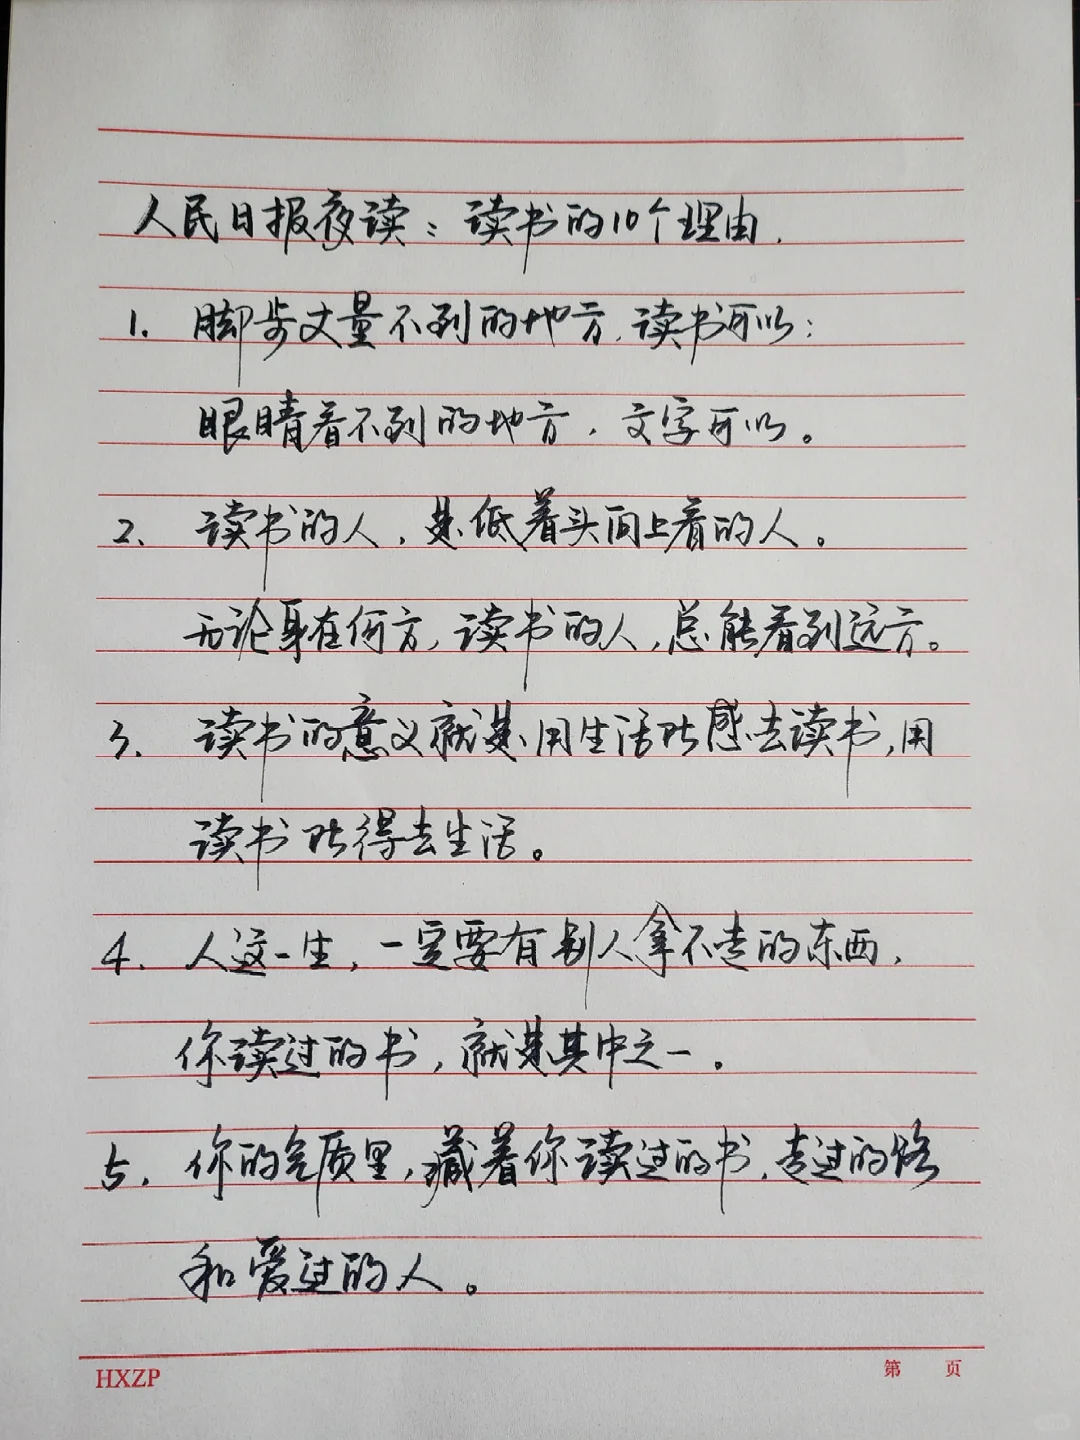 人民日报夜读：读书的10个理由.
1. 脚步丈量不到的地方,读书可以：
眼睛看不到的地方,文字可以。
2. 读书的人,是低着头向上看的人。
无论身在何方,读书的人,总能看到远方。
3. 读书的意义就是:用生活所感去读书,用
读书所得去生活。
4. 人这一生,一定要有别人拿不走的东西,
你读过的书,就是其中之一.
5. 你的气质里,藏着你读过的书,走过的路
和爱过的人。
HXZP
第 页